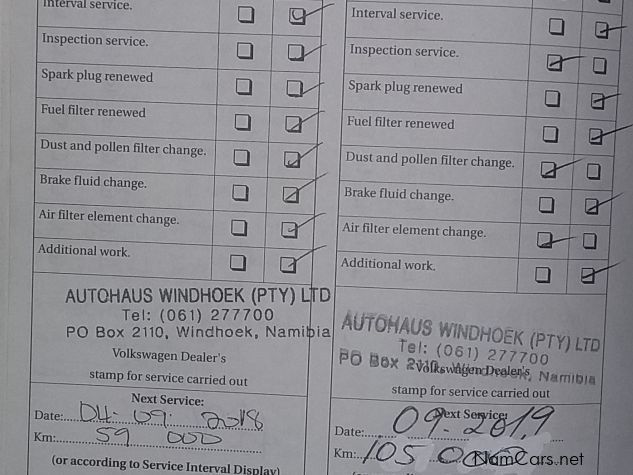 Interval service.
Inspection service.
Spark plug renewed
Fuel filter renewed
Dust and pollen filter change.
Brake fluid change.
Air filter element change.
Additional work.
AUTOHAUS WINDHOEK (PTY) LTD
Tel: (061) 277700
PO Box 2110, Windhoek, Namibia
Volkswagen Dealer's
stamp for service carried out
Next Service:
Date: 04. 09. 2018
Km: 59 000
(or according to Service Interval Display)
Interval service.
Inspection service.
Spark plug renewed
Fuel filter renewed
Dust and pollen filter change.
Brake fluid change.
Air filter element change.
Additional work.
AUTOHAUS WINDHOEK (PTY) LTD
Tel: (061) 277700
PO Box 2110, Windhoek, Namibia
Volkswagen Dealer's
stamp for service carried out
Next Service:
Date: 09. 2019
Km: 105
NamCars.net